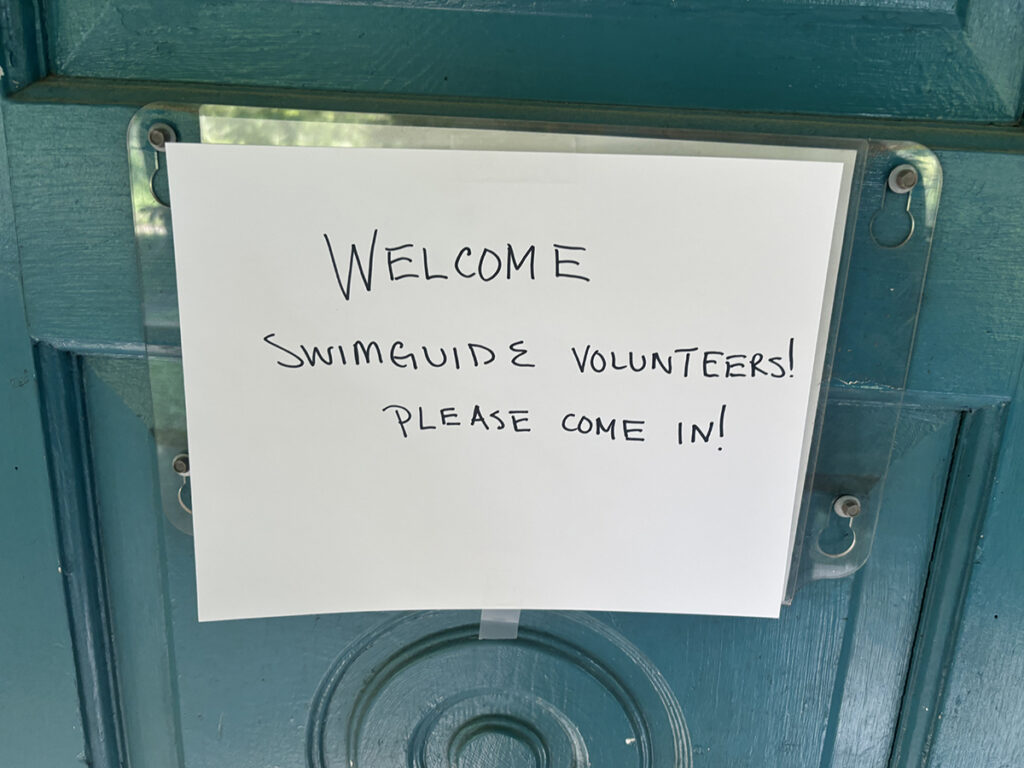 WELCOME
SWIMGUIDE VOLUNTEERS!
PLEASE COME IN!